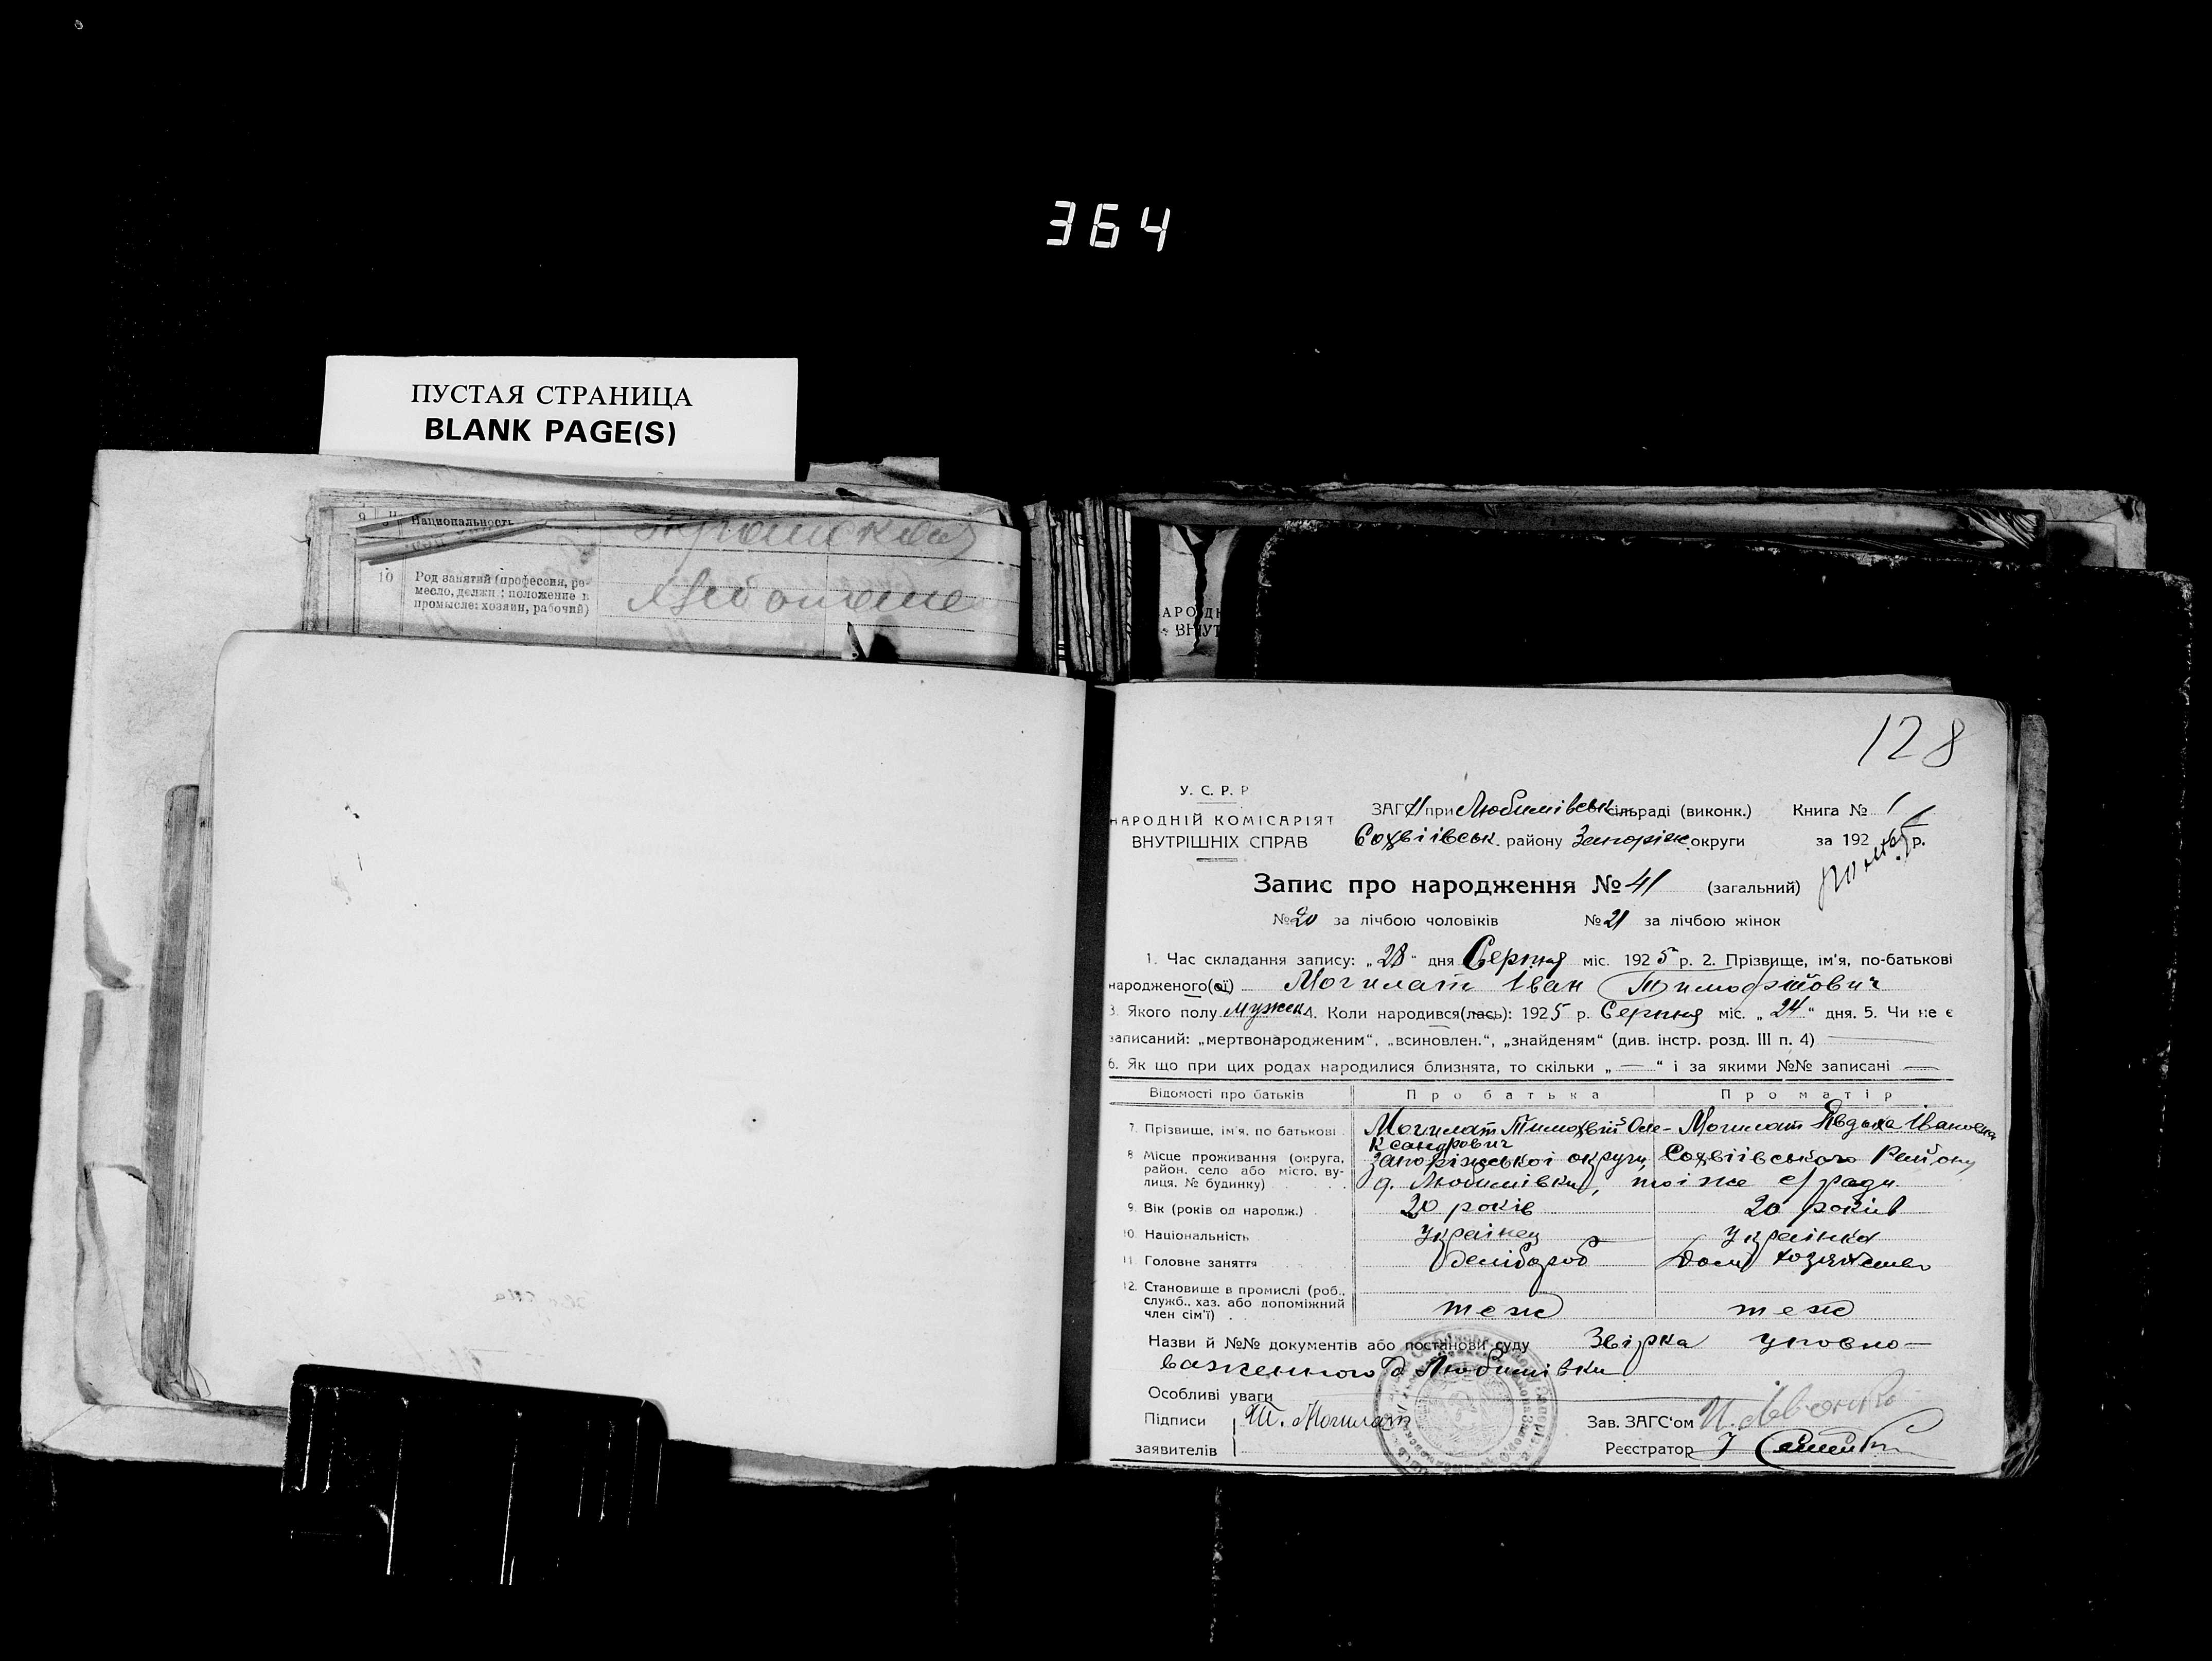 364
ПУСТАЯ СТРАНИЦА
BLANK PAGE(S)
Национальность
10 Род занятий (профессия, ре-
месло, должн; положение в
промысле: хозяин, рабочий)
АРОДН
ВНУТ
128
У. С. Р. Р
НАРОДНІЙ КОМІСАРІЯТ
ВНУТРІШНІХ СПРАВ
ЗАГС при Любимівськ сільраді (виконк.) Книга № 1
Софвіівськ. району Запоріж. округи за 192 5 р.
Запис про народження № 41 (загальний)
№ 20 за лічбою чоловіків № 21 за лічбою жінок
1. Час складання запису: „28" дня Серпня міс. 1925 р. 2. Прізвище, ім'я, по-батькові
народженого(ої) Могилат Іван Тимофійович
3. Якого полу мужск 4. Коли народився(лась): 1925 р. Серпня міс. „24" дня. 5. Чи не є
записаний: „мертвонародженим", „всиновлен.", „знайденям" (див. інстр. розд. III п. 4)
6. Як що при цих родах народилися близнята, то скільки „—" і за якими №№ записані —
Відомості про батьків Про батька Про матір
7. Прізвище, ім'я, по батькові Могилат Тимохвій Оле- Могилат Явдоха Івановна
ксандрович
8 Місце проживання (округа, Запоріжської округи, Сохвіівського Району
район, село або місто, ву- с. Любимівки, тої же с/ради
лиця, № будинку)
9. Вік (років од народж.) 20 років 20 років
10. Національність Українец Українка
11 Головне заняття хлібороб Дом хозяйство
12. Становище в промислі (роб.,
служб., хаз. або допоміжний теж теж
член сім'ї)
Назви й №№ документів або постанови суду Звірка уповно-
важенного Любимівки
Особливі уваги
Підписи Т. Могилат Зав. ЗАГС'ом
заявителів Реєстратор